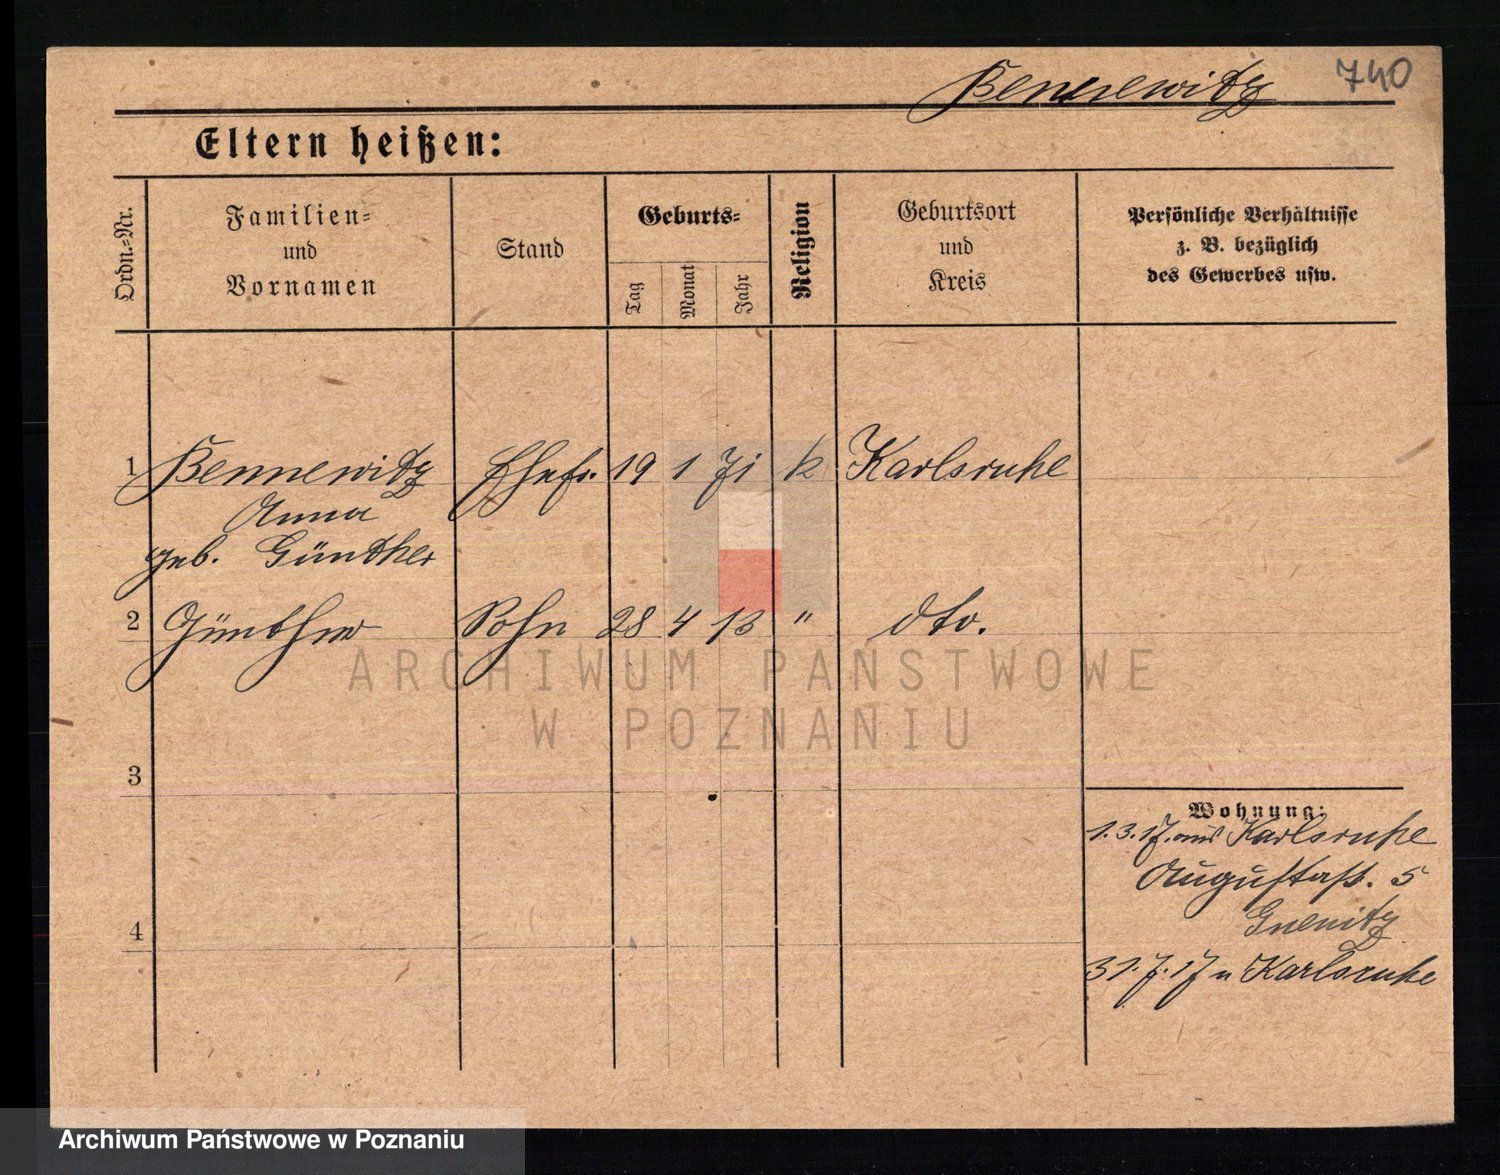 Bennewitz 740
Eltern heißen:
Ordn.=Nr.
Familien=
und
Vornamen
Stand
Geburts=
Tag
Monat
Jahr
Religion
Geburtsort
und
Kreis
Persönliche Verhältnisse
z. B. bezüglich
des Gewerbes usw.
1 Bennewitz Ehefr. 19 1 71 k Karlsruhe
Anna
geb. Günther
2 Günther Sohn 28 4 13 " dto.
3
Wohnung:
1. 3. 17. aus Karlsruhe
Augustast. 5
4
31. 7. 17 n Karlsruhe
ARCHIWUM PAŃSTWOWE
W POZNANIU
Archiwum Państwowe w Poznaniu